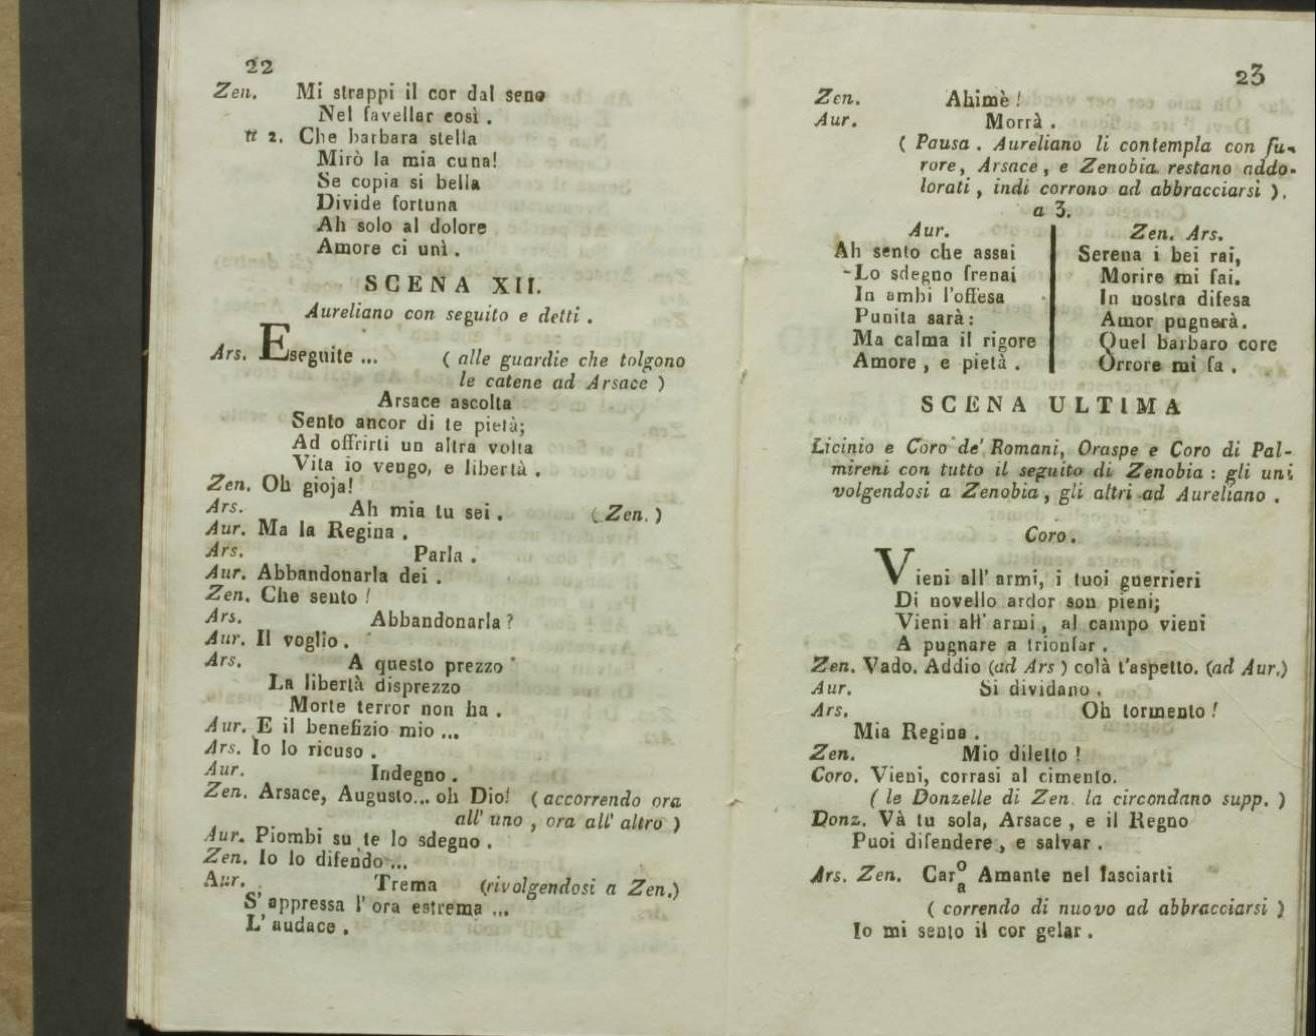 22
Zen. Mi strappi il cor dal seno
Nel favellar così .
a 2. Che barbara stella
Mirò la mia cuna!
Se copia si bella
Divide fortuna
Ah solo al dolore
Amore ci unì .
SCENA XII.
Aureliano con seguito e detti .
Ars. Eseguite ... ( alle guardie che tolgono
le catene ad Arsace )
Arsace ascolta
Sento ancor di te pietà;
Ad offrirti un altra volta
Vita io vengo, e libertà .
Zen. Oh gioja!
Ars. Ah mia tu sei . ( Zen. )
Aur. Ma la Regina .
Ars. Parla .
Aur. Abbandonarla dei .
Zen. Che sento !
Ars. Abbandonarla ?
Aur. Il voglio .
Ars. A questo prezzo
La libertà disprezzo
Morte terror non ha .
Aur. E il benefizio mio ...
Ars. Io lo ricuso .
Aur. Indegno .
Zen. Arsace, Augusto... oh Dio! ( accorrendo ora
all' uno , ora all' altro )
Aur. Piombi su te lo sdegno .
Zen. Io lo difendo ...
Aur. Trema (rivolgendosi a Zen.)
S' appressa l' ora estrema ...
L' audace .
23
Zen. Ahimè !
Aur. Morrà .
( Pausa . Aureliano li contempla con fu-
rore, Arsace, e Zenobia restano addo-
lorati , indi corrono ad abbracciarsi ).
a 3.
Aur.
Ah sento che assai
Lo sdegno frenai
In ambi l'offesa
Punita sarà:
Ma calma il rigore
Amore , e pietà .
Zen. Ars.
Serena i bei rai,
Morire mi fai.
In nostra difesa
Amor pugnerà.
Quel barbaro core
Orrore mi fa .
SCENA ULTIMA
Licinio e Coro de' Romani, Oraspe e Coro di Pal-
mireni con tutto il seguito di Zenobia : gli uni
volgendosi a Zenobia , gli altri ad Aureliano .
Coro .
Vieni all' armi, i tuoi guerrieri
Di novello ardor son pieni;
Vieni all' armi , al campo vieni
A pugnare a trionfar .
Zen. Vado. Addio (ad Ars ) colà t'aspetto. (ad Aur.)
Aur. Si dividano .
Ars. Oh tormento !
Mia Regina .
Zen. Mio diletto !
Coro. Vieni, corrasi al cimento.
( le Donzelle di Zen. la circondano supp. )
Donz. Và tu sola, Arsace , e il Regno
Puoi difendere , e salvar .
Ars. Zen. Car o/a Amante nel lasciarti
( correndo di nuovo ad abbracciarsi )
Io mi sento il cor gelar .